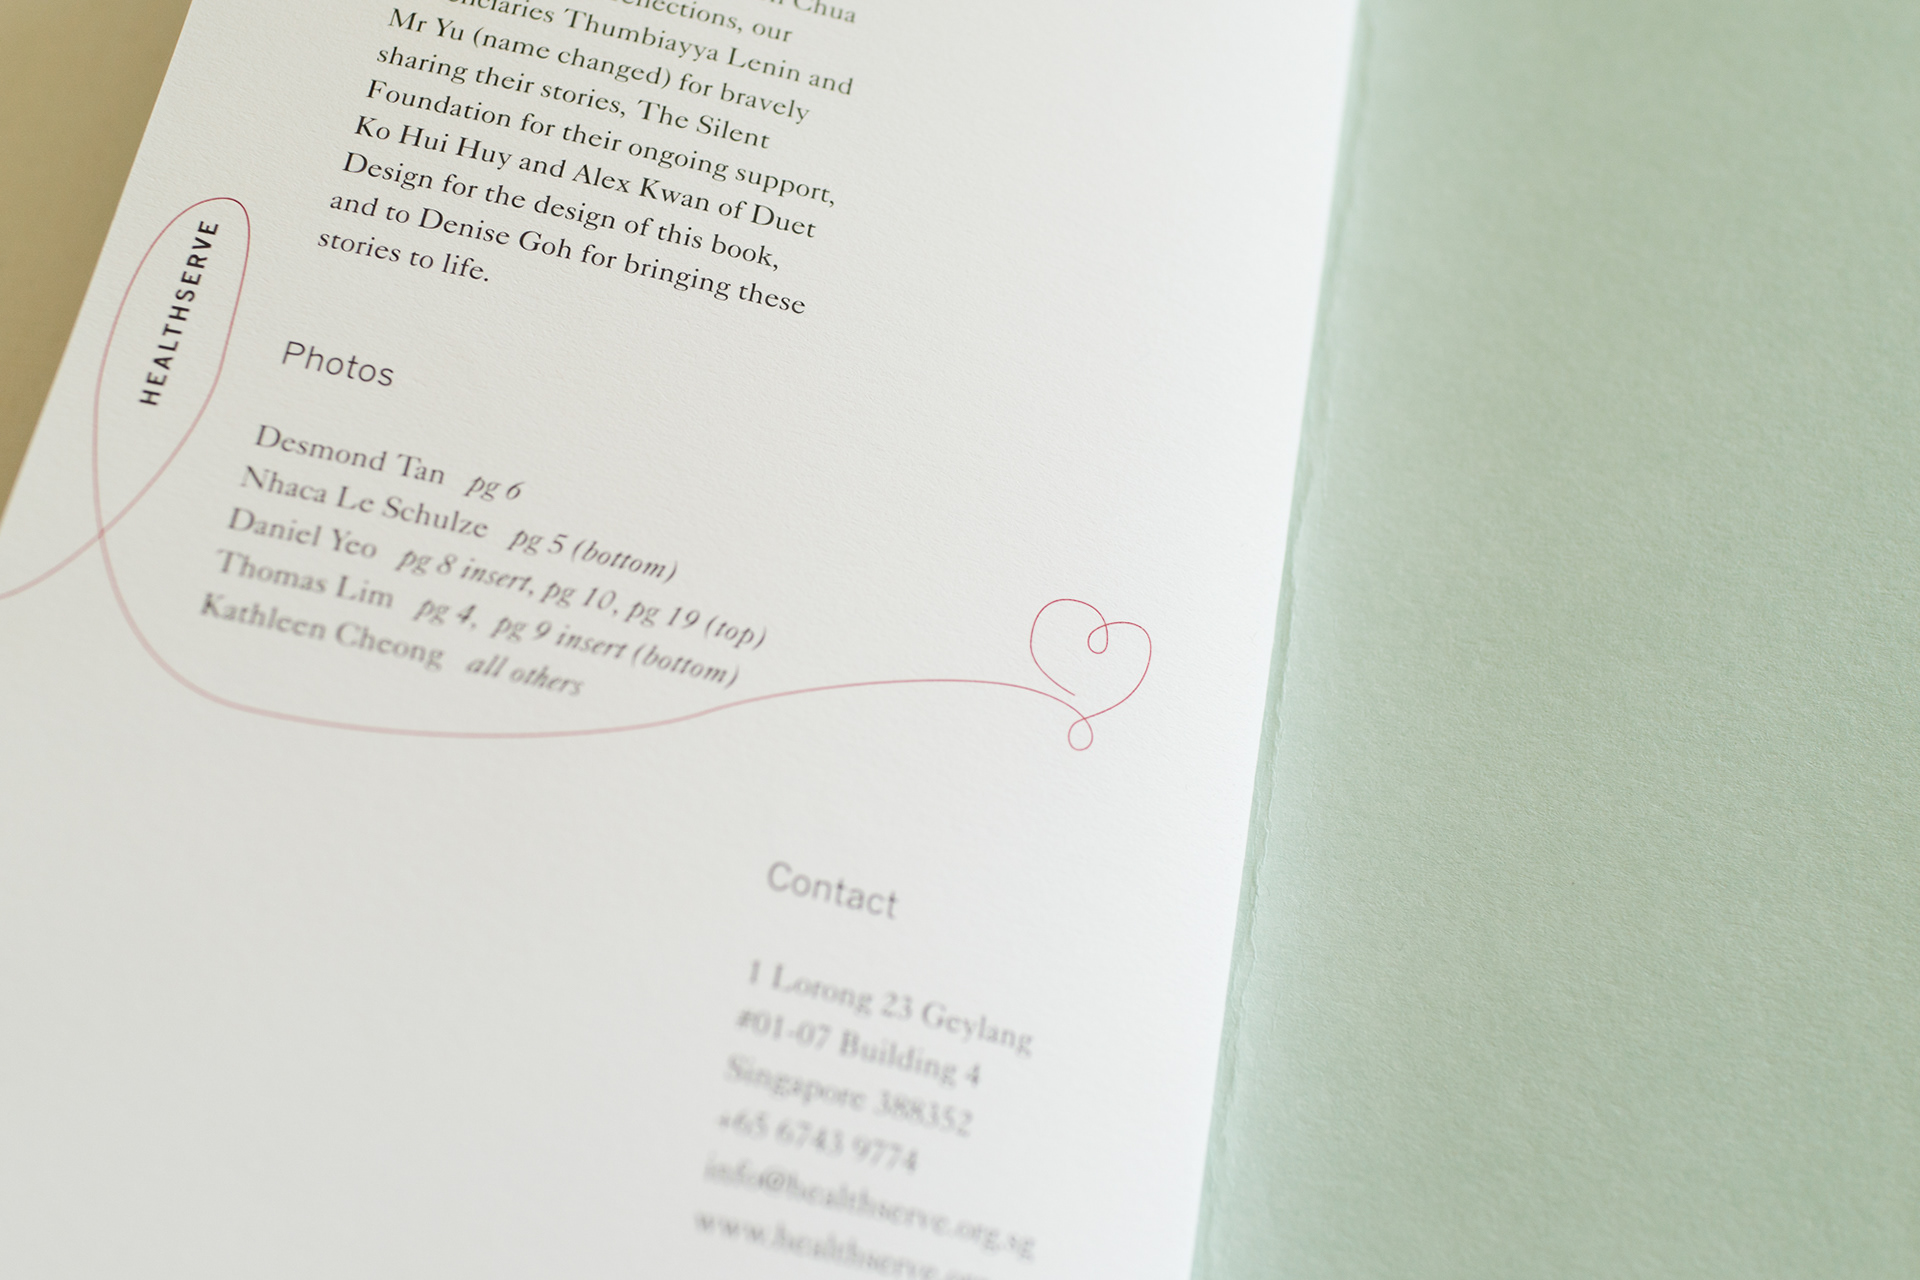 Chua
our
Thumbiayya Lenin and
Mr Yu (name changed) for bravely
sharing their stories, The Silent
Foundation for their ongoing support,
Ko Hui Huy and Alex Kwan of Duet
Design for the design of this book,
and to Denise Goh for bringing these
stories to life.
HEALTHSERVE
Photos
Desmond Tan pg 6
Nhaca Le Schulze pg 5 (bottom)
Daniel Yeo pg 8 insert, pg 10, pg 19 (top)
Thomas Lim pg 4, pg 9 insert (bottom)
Kathleen Cheong all others
Contact
1 Lorong 23 Geylang
#01-07 Building 4
Singapore 388352
+65 6743 9774
info@healthserve.org.sg